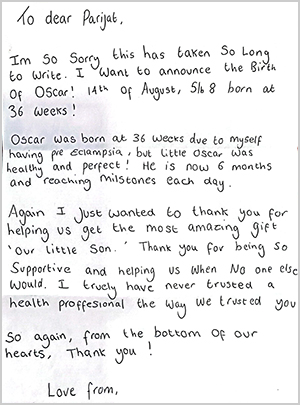 To dear Parijat,
Im So Sorry this has taken So Long
to write. I want to announce the Birth
of OScar! 14th of August, 5lb 8 born at
36 weeks!
Oscar was born at 36 weeks due to myself
having pre eclampsia, but little Oscar was
healthy and perfect! He is now 6 months
and reaching milstones each day.
Again I Just wanted to thank you for
helping us get the most amazing gift
'Our little Son.' Thank you for being so
Supportive and helping us when No one else
would. I truely have never trusted a
health proffesional the way we trusted you
So again, from the bottom of our
hearts, Thank you!
Love from,